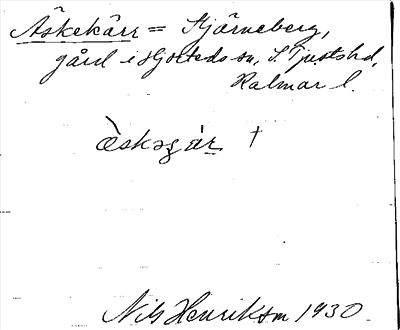 Äskekärr = Stjärneberg,
gård i Hjorteds sn, S. Tjusts hd,
Kalmar l.
æ̀skəʒár †
Nils Henriksson 1930